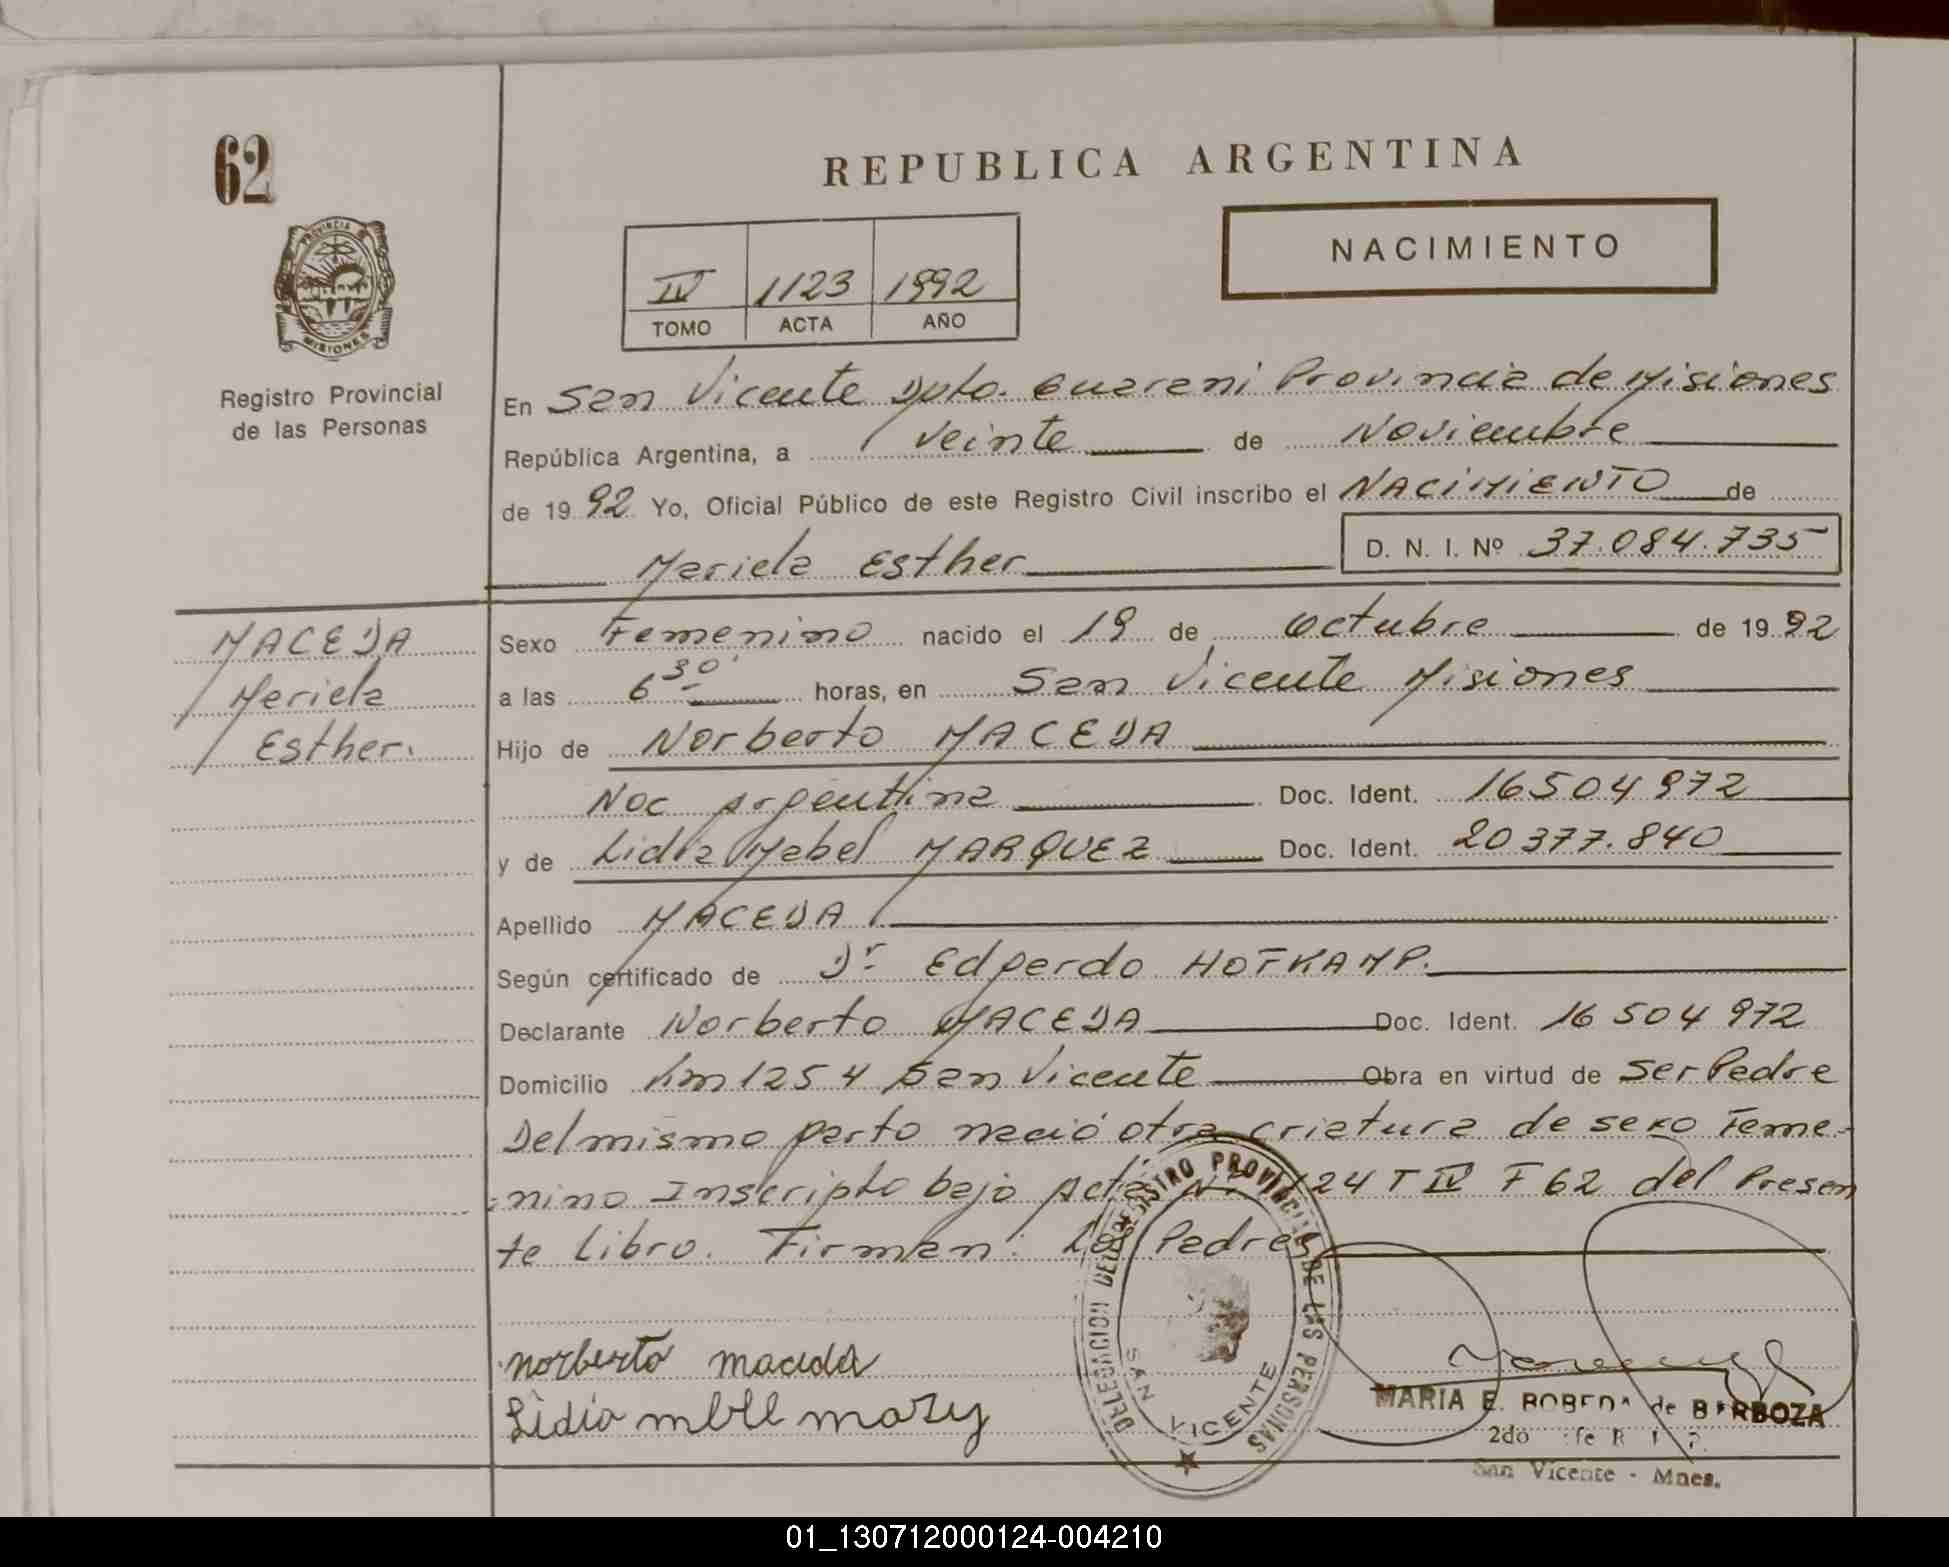 62
REPUBLICA ARGENTINA
NACIMIENTO
IV 1123 1992
TOMO ACTA AÑO
PROVINCIA DE
MISIONES
Registro Provincial
de las Personas
En San Vicente Dpto. Guarani Provincia de Misiones
República Argentina, a veinte de Noviembre
de 1992 Yo, Oficial Público de este Registro Civil inscribo el NACIMIENTO de
Mariela Esther D. N. I. Nº 37.084.735
MACEDA
Mariela
Esther.
Sexo Femenino nacido el 19 de Octubre de 1992
a las 6 30' horas, en San Vicente Misiones
Hijo de Norberto MACEDA
Nac Argentina Doc. Ident. 16504972
y de Lidia Mabel MARQUEZ Doc. Ident. 20377.840
Apellido MACEDA
Según certificado de Dr Edgardo HOFKAMP.
Declarante Norberto MACEDA Doc. Ident. 16 504 972
Domicilio Km 1254 San Vicente Obra en virtud de Ser Padre
Del mismo parto nació otra criatura de sexo Feme-
nino Inscripto bajo Acta 1124 T IV F 62 del Presen
te Libro. Firman: Los Padres
DELEGACION DEL REGISTRO PROVINCIAL DE LAS PERSONAS
SAN VICENTE
norberto maceda
Lidia
MARIA E. de BARBOZA
2do
San Vicente - Mnes.
01_130712000124-004210